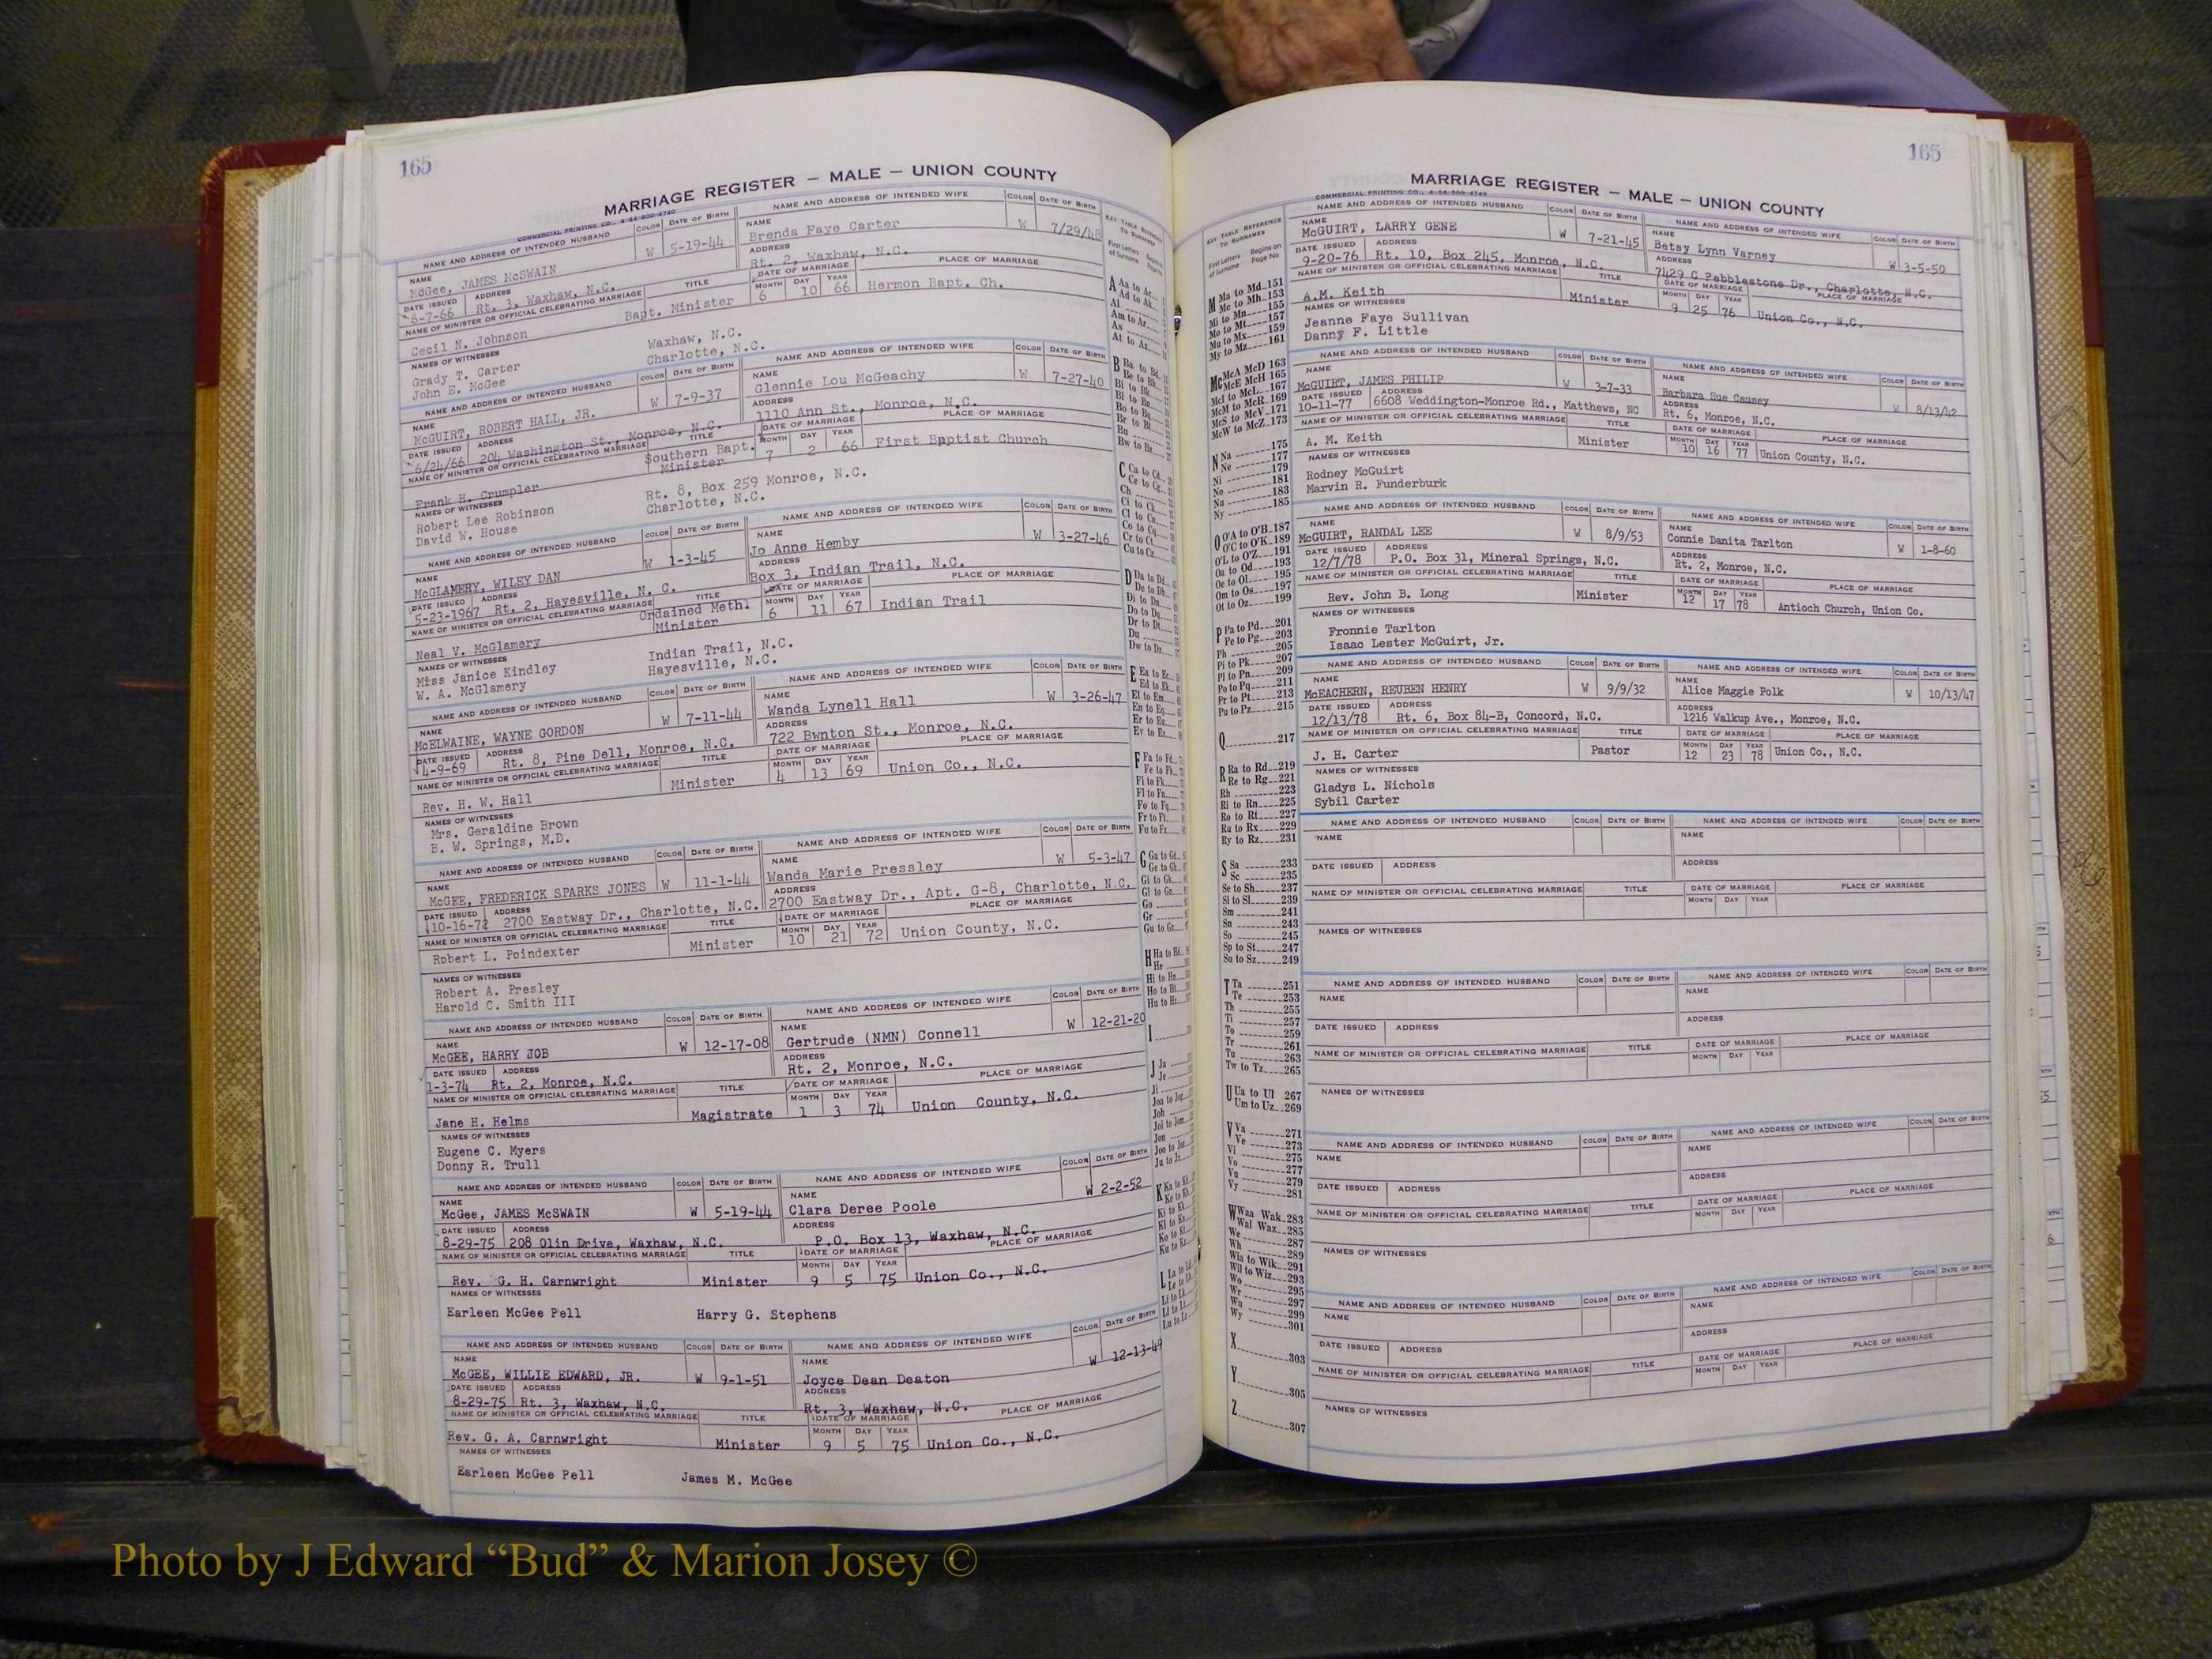 165
MARRIAGE REGISTER — MALE — UNION COUNTY
COMMERCIAL PRINTING CO., 4-64-500-4740
NAME AND ADDRESS OF INTENDED HUSBAND COLOR DATE OF BIRTH NAME AND ADDRESS OF INTENDED WIFE COLOR DATE OF BIRTH
NAME McGee, JAMES McSWAIN W 5-19-44 NAME Brenda Faye Carter W 7/29/48
DATE ISSUED 6-7-66 ADDRESS Rt. 3, Waxhaw, N.C. ADDRESS Rt. 2, Waxhaw, N.C.
NAME OF MINISTER OR OFFICIAL CELEBRATING MARRIAGE TITLE DATE OF MARRIAGE PLACE OF MARRIAGE
Cecil N. Johnson Bapt. Minister MONTH 6 DAY 10 YEAR 66 Hermon Bapt. Ch.
NAMES OF WITNESSES
Grady T. Carter Waxhaw, N.C.
John E. McGee Charlotte, N.C.
NAME AND ADDRESS OF INTENDED HUSBAND COLOR DATE OF BIRTH NAME AND ADDRESS OF INTENDED WIFE COLOR DATE OF BIRTH
NAME McGUIRT, ROBERT HALL, JR. W 7-9-37 NAME Glennie Lou McGeachy W 7-27-40
DATE ISSUED 6/24/66 ADDRESS 204 Washington St., Monroe, N.C. ADDRESS 1110 Ann St., Monroe, N.C.
NAME OF MINISTER OR OFFICIAL CELEBRATING MARRIAGE TITLE DATE OF MARRIAGE PLACE OF MARRIAGE
Frank H. Crumpler Southern Bapt. Minister MONTH 7 DAY 2 YEAR 66 First Baptist Church
NAMES OF WITNESSES
Robert Lee Robinson Rt. 8, Box 259 Monroe, N.C.
David W. House Charlotte, N.C.
NAME AND ADDRESS OF INTENDED HUSBAND COLOR DATE OF BIRTH NAME AND ADDRESS OF INTENDED WIFE COLOR DATE OF BIRTH
NAME McGLAMERY, WILEY DAN W 1-3-45 NAME Jo Anne Hemby W 3-27-46
DATE ISSUED 5-23-1967 ADDRESS Rt. 2, Hayesville, N. C. ADDRESS Box 3, Indian Trail, N.C.
NAME OF MINISTER OR OFFICIAL CELEBRATING MARRIAGE TITLE DATE OF MARRIAGE PLACE OF MARRIAGE
Neal V. McGlamery Ordained Meth. Minister MONTH 6 DAY 11 YEAR 67 Indian Trail
NAMES OF WITNESSES
Miss Janice Kindley Indian Trail, N.C.
W. A. McGlamery Hayesville, N.C.
NAME AND ADDRESS OF INTENDED HUSBAND COLOR DATE OF BIRTH NAME AND ADDRESS OF INTENDED WIFE COLOR DATE OF BIRTH
NAME McELWAINE, WAYNE GORDON W 7-11-44 NAME Wanda Lynell Hall W 3-26-47
DATE ISSUED 4-9-69 ADDRESS Rt. 8, Pine Dell, Monroe, N.C. ADDRESS 722 Bwnton St., Monroe, N.C.
NAME OF MINISTER OR OFFICIAL CELEBRATING MARRIAGE TITLE DATE OF MARRIAGE PLACE OF MARRIAGE
Rev. H. W. Hall Minister MONTH 4 DAY 13 YEAR 69 Union Co., N.C.
NAMES OF WITNESSES
Mrs. Geraldine Brown
B. W. Springs, M.D.
NAME AND ADDRESS OF INTENDED HUSBAND COLOR DATE OF BIRTH NAME AND ADDRESS OF INTENDED WIFE COLOR DATE OF BIRTH
NAME McGEE, FREDERICK SPARKS JONES W 11-1-44 NAME Wanda Marie Pressley W 5-3-47
DATE ISSUED 10-16-72 ADDRESS 2700 Eastway Dr., Charlotte, N.C. ADDRESS 2700 Eastway Dr., Apt. G-8, Charlotte, N.C.
NAME OF MINISTER OR OFFICIAL CELEBRATING MARRIAGE TITLE DATE OF MARRIAGE PLACE OF MARRIAGE
Robert L. Poindexter Minister MONTH 10 DAY 21 YEAR 72 Union County, N.C.
NAMES OF WITNESSES
Robert A. Presley
Harold C. Smith III
NAME AND ADDRESS OF INTENDED HUSBAND COLOR DATE OF BIRTH NAME AND ADDRESS OF INTENDED WIFE COLOR DATE OF BIRTH
NAME McGEE, HARRY JOB W 12-17-08 NAME Gertrude (NMN) Connell W 12-21-20
DATE ISSUED 1-3-74 ADDRESS Rt. 2, Monroe, N.C. ADDRESS Rt. 2, Monroe, N.C.
NAME OF MINISTER OR OFFICIAL CELEBRATING MARRIAGE TITLE DATE OF MARRIAGE PLACE OF MARRIAGE
Jane H. Helms Magistrate MONTH 1 DAY 3 YEAR 74 Union County, N.C.
NAMES OF WITNESSES
Eugene C. Myers
Donny R. Trull
NAME AND ADDRESS OF INTENDED HUSBAND COLOR DATE OF BIRTH NAME AND ADDRESS OF INTENDED WIFE COLOR DATE OF BIRTH
NAME McGee, JAMES McSWAIN W 5-19-44 NAME Clara Deree Poole W 2-2-52
DATE ISSUED 8-29-75 ADDRESS 208 Olin Drive, Waxhaw, N.C. ADDRESS P.O. Box 13, Waxhaw, N.C.
NAME OF MINISTER OR OFFICIAL CELEBRATING MARRIAGE TITLE DATE OF MARRIAGE PLACE OF MARRIAGE
Rev. G. H. Carnwright Minister MONTH 9 DAY 5 YEAR 75 Union Co., N.C.
NAMES OF WITNESSES
Earleen McGee Pell Harry G. Stephens
NAME AND ADDRESS OF INTENDED HUSBAND COLOR DATE OF BIRTH NAME AND ADDRESS OF INTENDED WIFE COLOR DATE OF BIRTH
NAME McGEE, WILLIE EDWARD, JR. W 9-1-51 NAME Joyce Dean Deaton W 12-13-49
DATE ISSUED 8-29-75 ADDRESS Rt. 3, Waxhaw, N.C. ADDRESS Rt. 3, Waxhaw, N.C.
NAME OF MINISTER OR OFFICIAL CELEBRATING MARRIAGE TITLE DATE OF MARRIAGE PLACE OF MARRIAGE
Rev. G. A. Carnwright Minister MONTH 9 DAY 5 YEAR 75 Union Co., N.C.
NAMES OF WITNESSES
Earleen McGee Pell James M. McGee
165
MARRIAGE REGISTER — MALE — UNION COUNTY
COMMERCIAL PRINTING CO., 4-64-500-4740
KEY TABLE REFERENCE TO SURNAMES
First Letters of Surname Begins on Page No
M Ma to Md 151
Me to Mh 153
Mi to Mn 155
Mo to Mt 157
Mu to Mx 159
My to Mz 161
Mc McA McD 163
McE McH 165
McI to McL 167
McM to McR 169
McS to McV 171
McW to McZ 173
N Na 175
Ne 177
Ni 179
No 181
Nu 183
Ny 185
O O'A to O'B 187
O'C to O'K 189
O'L to O'Z 191
Oa to Od 193
Oe to Ol 195
Om to Os 197
Ot to Oz 199
P Pa to Pd 201
Pe to Pg 203
Ph 205
Pi to Pk 207
Pl to Pn 209
Po to Pq 211
Pr to Pt 213
Pu to Pz 215
Q 217
R Ra to Rd 219
Re to Rg 221
Rh 223
Ri to Rn 225
Ro to Rt 227
Ru to Rx 229
Ry to Rz 231
S Sa 233
Sc 235
Se to Sh 237
Si to Sl 239
Sm 241
Sn 243
So 245
Sp to St 247
Su to Sz 249
T Ta 251
Te 253
Th 255
Ti 257
To 259
Tr 261
Tu 263
Tw to Tz 265
U Ua to Ul 267
Um to Uz 269
V Va 271
Ve 273
Vi 275
Vo 277
Vu 279
Vy 281
W Waa Wak 283
Wal Waz 285
We 287
Wh 289
Wia to Wik 291
Wil to Wiz 293
Wo 295
Wr 297
Wu 299
Wy 301
X 303
Y 305
Z 307
NAME AND ADDRESS OF INTENDED HUSBAND COLOR DATE OF BIRTH NAME AND ADDRESS OF INTENDED WIFE COLOR DATE OF BIRTH
NAME McGUIRT, LARRY GENE W 7-21-45 NAME Betsy Lynn Varney W 3-5-50
DATE ISSUED 9-20-76 ADDRESS Rt. 10, Box 245, Monroe, N.C. ADDRESS 7429 C Pebblestone Dr., Charlotte, N.C.
NAME OF MINISTER OR OFFICIAL CELEBRATING MARRIAGE TITLE DATE OF MARRIAGE PLACE OF MARRIAGE
A.M. Keith Minister MONTH 9 DAY 25 YEAR 76 Union Co., N.C.
NAMES OF WITNESSES
Jeanne Faye Sullivan
Danny F. Little
NAME AND ADDRESS OF INTENDED HUSBAND COLOR DATE OF BIRTH NAME AND ADDRESS OF INTENDED WIFE COLOR DATE OF BIRTH
NAME McGUIRT, JAMES PHILIP W 3-7-33 NAME Barbara Sue Causey W 8/13/42
DATE ISSUED 10-11-77 ADDRESS 6608 Weddington-Monroe Rd., Matthews, NC ADDRESS Rt. 6, Monroe, N.C.
NAME OF MINISTER OR OFFICIAL CELEBRATING MARRIAGE TITLE DATE OF MARRIAGE PLACE OF MARRIAGE
A. M. Keith Minister MONTH 10 DAY 16 YEAR 77 Union County, N.C.
NAMES OF WITNESSES
Rodney McGuirt
Marvin R. Funderburk
NAME AND ADDRESS OF INTENDED HUSBAND COLOR DATE OF BIRTH NAME AND ADDRESS OF INTENDED WIFE COLOR DATE OF BIRTH
NAME McGUIRT, RANDAL LEE W 8/9/53 NAME Connie Danita Tarlton W 1-8-60
DATE ISSUED 12/7/78 ADDRESS P.O. Box 31, Mineral Springs, N.C. ADDRESS Rt. 2, Monroe, N.C.
NAME OF MINISTER OR OFFICIAL CELEBRATING MARRIAGE TITLE DATE OF MARRIAGE PLACE OF MARRIAGE
Rev. John B. Long Minister MONTH 12 DAY 17 YEAR 78 Antioch Church, Union Co.
NAMES OF WITNESSES
Fronnie Tarlton
Isaac Lester McGuirt, Jr.
NAME AND ADDRESS OF INTENDED HUSBAND COLOR DATE OF BIRTH NAME AND ADDRESS OF INTENDED WIFE COLOR DATE OF BIRTH
NAME McEACHERN, REUBEN HENRY W 9/9/32 NAME Alice Maggie Polk W 10/13/47
DATE ISSUED 12/13/78 ADDRESS Rt. 6, Box 84-B, Concord, N.C. ADDRESS 1216 Walkup Ave., Monroe, N.C.
NAME OF MINISTER OR OFFICIAL CELEBRATING MARRIAGE TITLE DATE OF MARRIAGE PLACE OF MARRIAGE
J. H. Carter Pastor MONTH 12 DAY 23 YEAR 78 Union Co., N.C.
NAMES OF WITNESSES
Gladys L. Nichols
Sybil Carter
NAME AND ADDRESS OF INTENDED HUSBAND COLOR DATE OF BIRTH NAME AND ADDRESS OF INTENDED WIFE COLOR DATE OF BIRTH
NAME NAME
DATE ISSUED ADDRESS ADDRESS
NAME OF MINISTER OR OFFICIAL CELEBRATING MARRIAGE TITLE DATE OF MARRIAGE PLACE OF MARRIAGE
MONTH DAY YEAR
NAMES OF WITNESSES
NAME AND ADDRESS OF INTENDED HUSBAND COLOR DATE OF BIRTH NAME AND ADDRESS OF INTENDED WIFE COLOR DATE OF BIRTH
NAME NAME
DATE ISSUED ADDRESS ADDRESS
NAME OF MINISTER OR OFFICIAL CELEBRATING MARRIAGE TITLE DATE OF MARRIAGE PLACE OF MARRIAGE
MONTH DAY YEAR
NAMES OF WITNESSES
NAME AND ADDRESS OF INTENDED HUSBAND COLOR DATE OF BIRTH NAME AND ADDRESS OF INTENDED WIFE COLOR DATE OF BIRTH
NAME NAME
DATE ISSUED ADDRESS ADDRESS
NAME OF MINISTER OR OFFICIAL CELEBRATING MARRIAGE TITLE DATE OF MARRIAGE PLACE OF MARRIAGE
MONTH DAY YEAR
NAMES OF WITNESSES
NAME AND ADDRESS OF INTENDED HUSBAND COLOR DATE OF BIRTH NAME AND ADDRESS OF INTENDED WIFE COLOR DATE OF BIRTH
NAME NAME
DATE ISSUED ADDRESS ADDRESS
NAME OF MINISTER OR OFFICIAL CELEBRATING MARRIAGE TITLE DATE OF MARRIAGE PLACE OF MARRIAGE
MONTH DAY YEAR
NAMES OF WITNESSES
Photo by J Edward “Bud” & Marion Josey ©